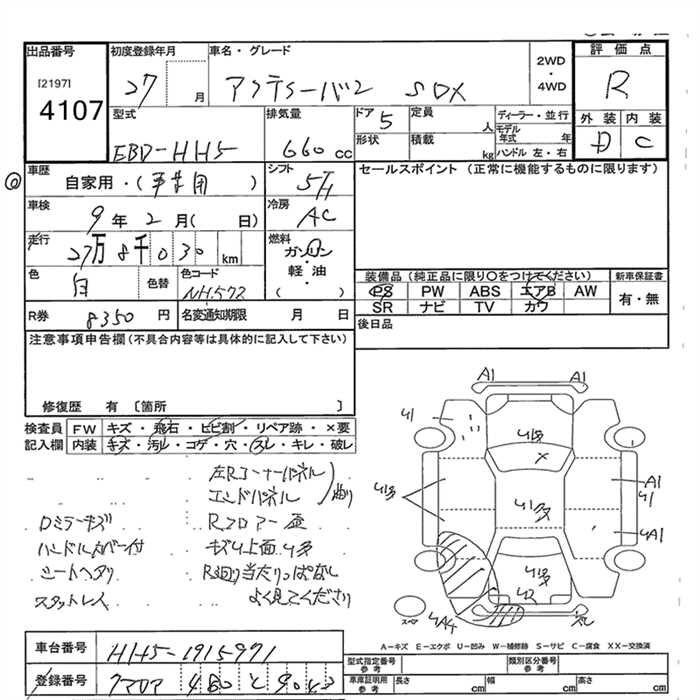 出品番号 初度登録年月 車名・グレード 2WD ・ 4WD 評価点
[2197] 27 月 アクティーバン SDX R
4107
型式 排気量 ドア 5 定員 人 ディーラー・並行 外装 内装
EBD-HH5 660 cc 形状 積載 kg モデル年式 年 ハンドル 左・右 D C
車歴 自家用・(事業用) シフト 5 セールスポイント (正常に機能するものに限ります)
車検 9年 2月( 日) 冷房 AC
走行 27万8千030 km 燃料 ガソリン・軽油・( )
色 白 色替 色コード NH578 装備品 (純正品に限り○をつけてください) 新車保証書
PS PW ABS エアB AW 有・無
SR ナビ TV カワ
R券 8350 円 名変通知期限 月 日 後日品
注意事項申告欄 (不具合内容等は具体的に記入して下さい)
修復歴 有 〔箇所 〕
検査員 FW キズ・飛石・ヒビ割・リペア跡・×要
記入欄 内装 キズ・汚れ・コゲ・穴・スレ・キレ・破レ
左Rコーナーパネル
エンドパネル 曲り
Dミラーキズ Rフロアー歪
ハンドルカバー付 キズ 上面 U多
シートヘタリ R廻り当たりっぱなし
スタットレス よく見てください
A1 A1
U1
A1
U1
UA1
UA4
スペア
A-キズ E-エクボ U-凹み W-補修跡 S-サビ C-腐食 XX-交換済
車台番号 HH5-1915971 型式指定番号 参考 類別区分番号 参考
登録番号 車庫証明用 参考 長さ cm 幅 cm 高さ cm